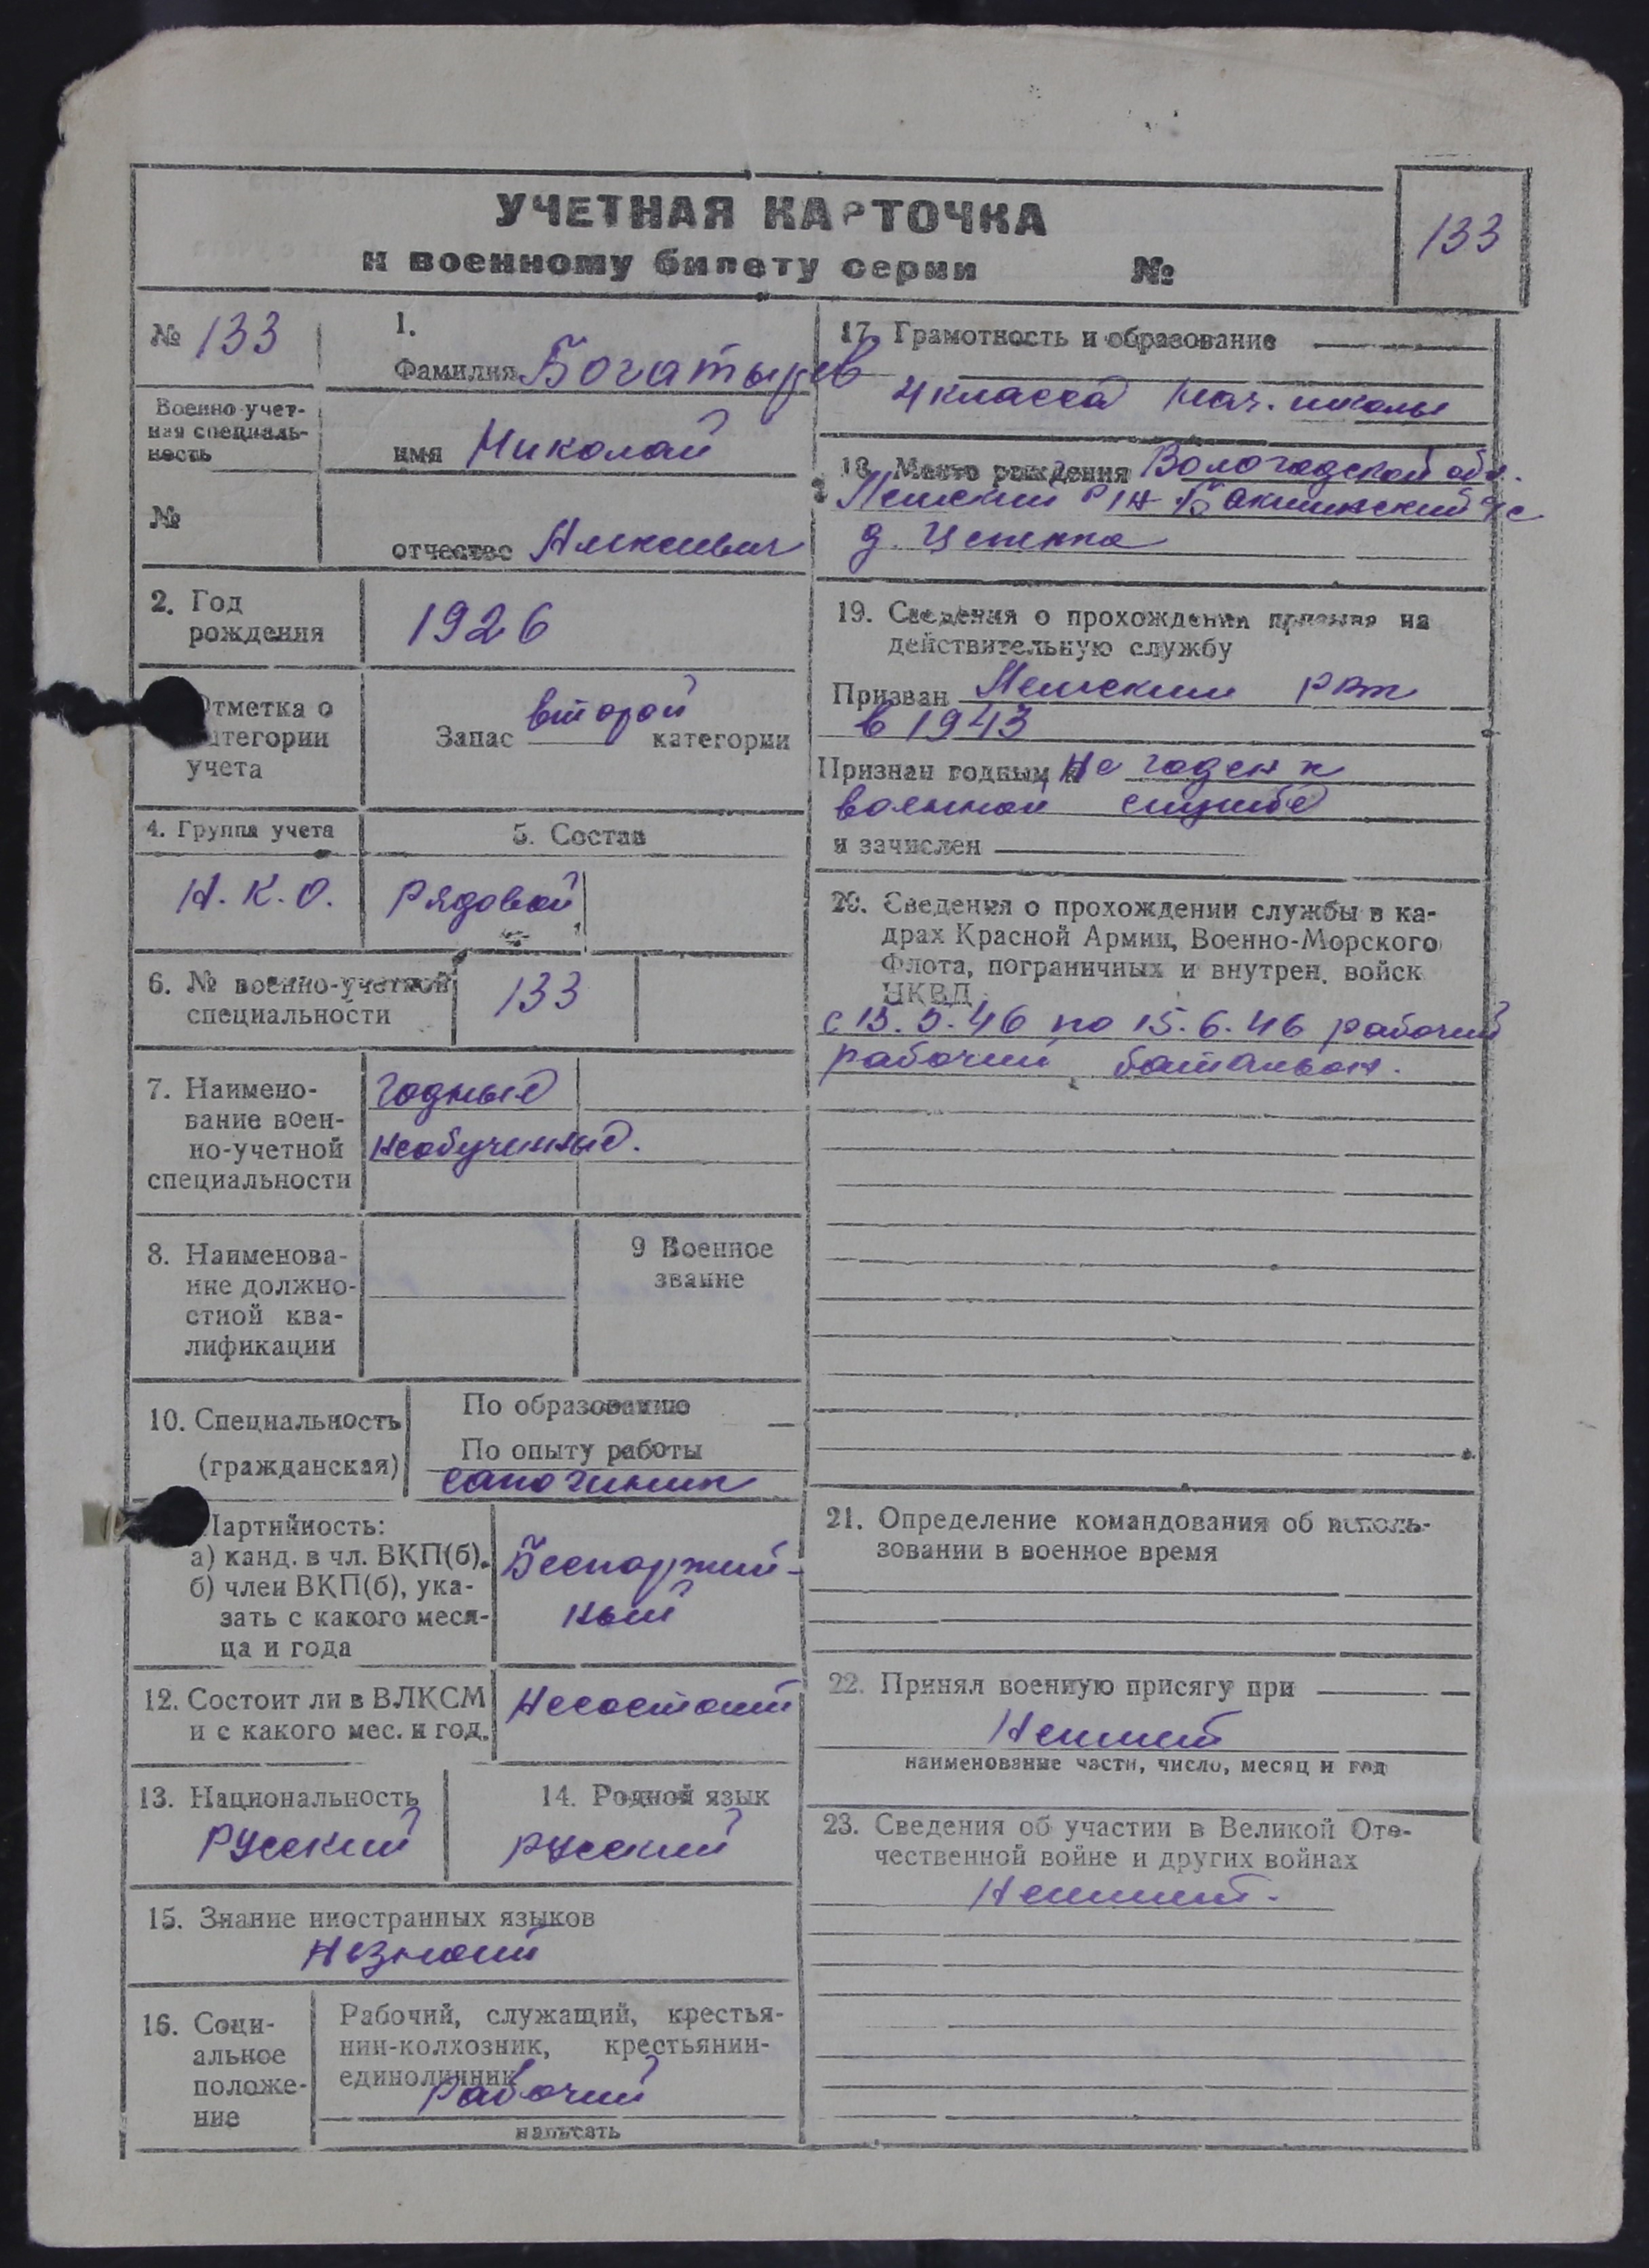 УЧЕТНАЯ КАРТОЧКА
к военному билету серии №
133
№ 133
Военно-учет-
ная специаль-
ность
№
1.
Фамилия Богатырев
имя Николай
отчество Алексевич
2. Год
рождения
1926
Отметка о
категории
учета
Запас второй категории
4. Группа учета
5. Состав
Н.К.О.
Рядовой
6. № военно-учетной
специальности
133
7. Наимено-
вание воен-
но-учетной
специальности
годные
необученные.
8. Наименова-
ние должно-
стной ква-
лификации
9 Военное
звание
10. Специальность
(гражданская)
По образованию —
По опыту работы
сапожник
Партийность:
а) канд. в чл. ВКП(б).
б) член ВКП(б), ука-
зать с какого меся-
ца и года
Беспартий-
ный
12. Состоит ли в ВЛКСМ
и с какого мес. и год.
Несостоит
13. Национальность
Русский
14. Родной язык
русский
15. Знание иностранных языков
Незнает
16. Соци-
альное
положе-
ние
Рабочий, служащий, крестья-
нин-колхозник, крестьянин-
единоличник
Рабочий
написать
17. Грамотность и образование
4 класса нач. школы
18. Место рождения Вологодской обл.
р/н с/с
д.
19. Сведения о прохождении призыва на
действительную службу
Призван рвк
в 1943
Признан годным к Не годен к
военной службе
и зачислен
20. Сведения о прохождении службы в ка-
драх Красной Армии, Военно-Морского
Флота, пограничных и внутрен. войск
НКВД
с 15.5.46 по 15.6.46 рабочий
рабочий батальон.
21. Определение командования об исполь-
зовании в военное время
22. Принял военную присягу при
Неимеет
наименование части, число, месяц и год
23. Сведения об участии в Великой Оте-
чественной войне и других войнах
Неимеет.